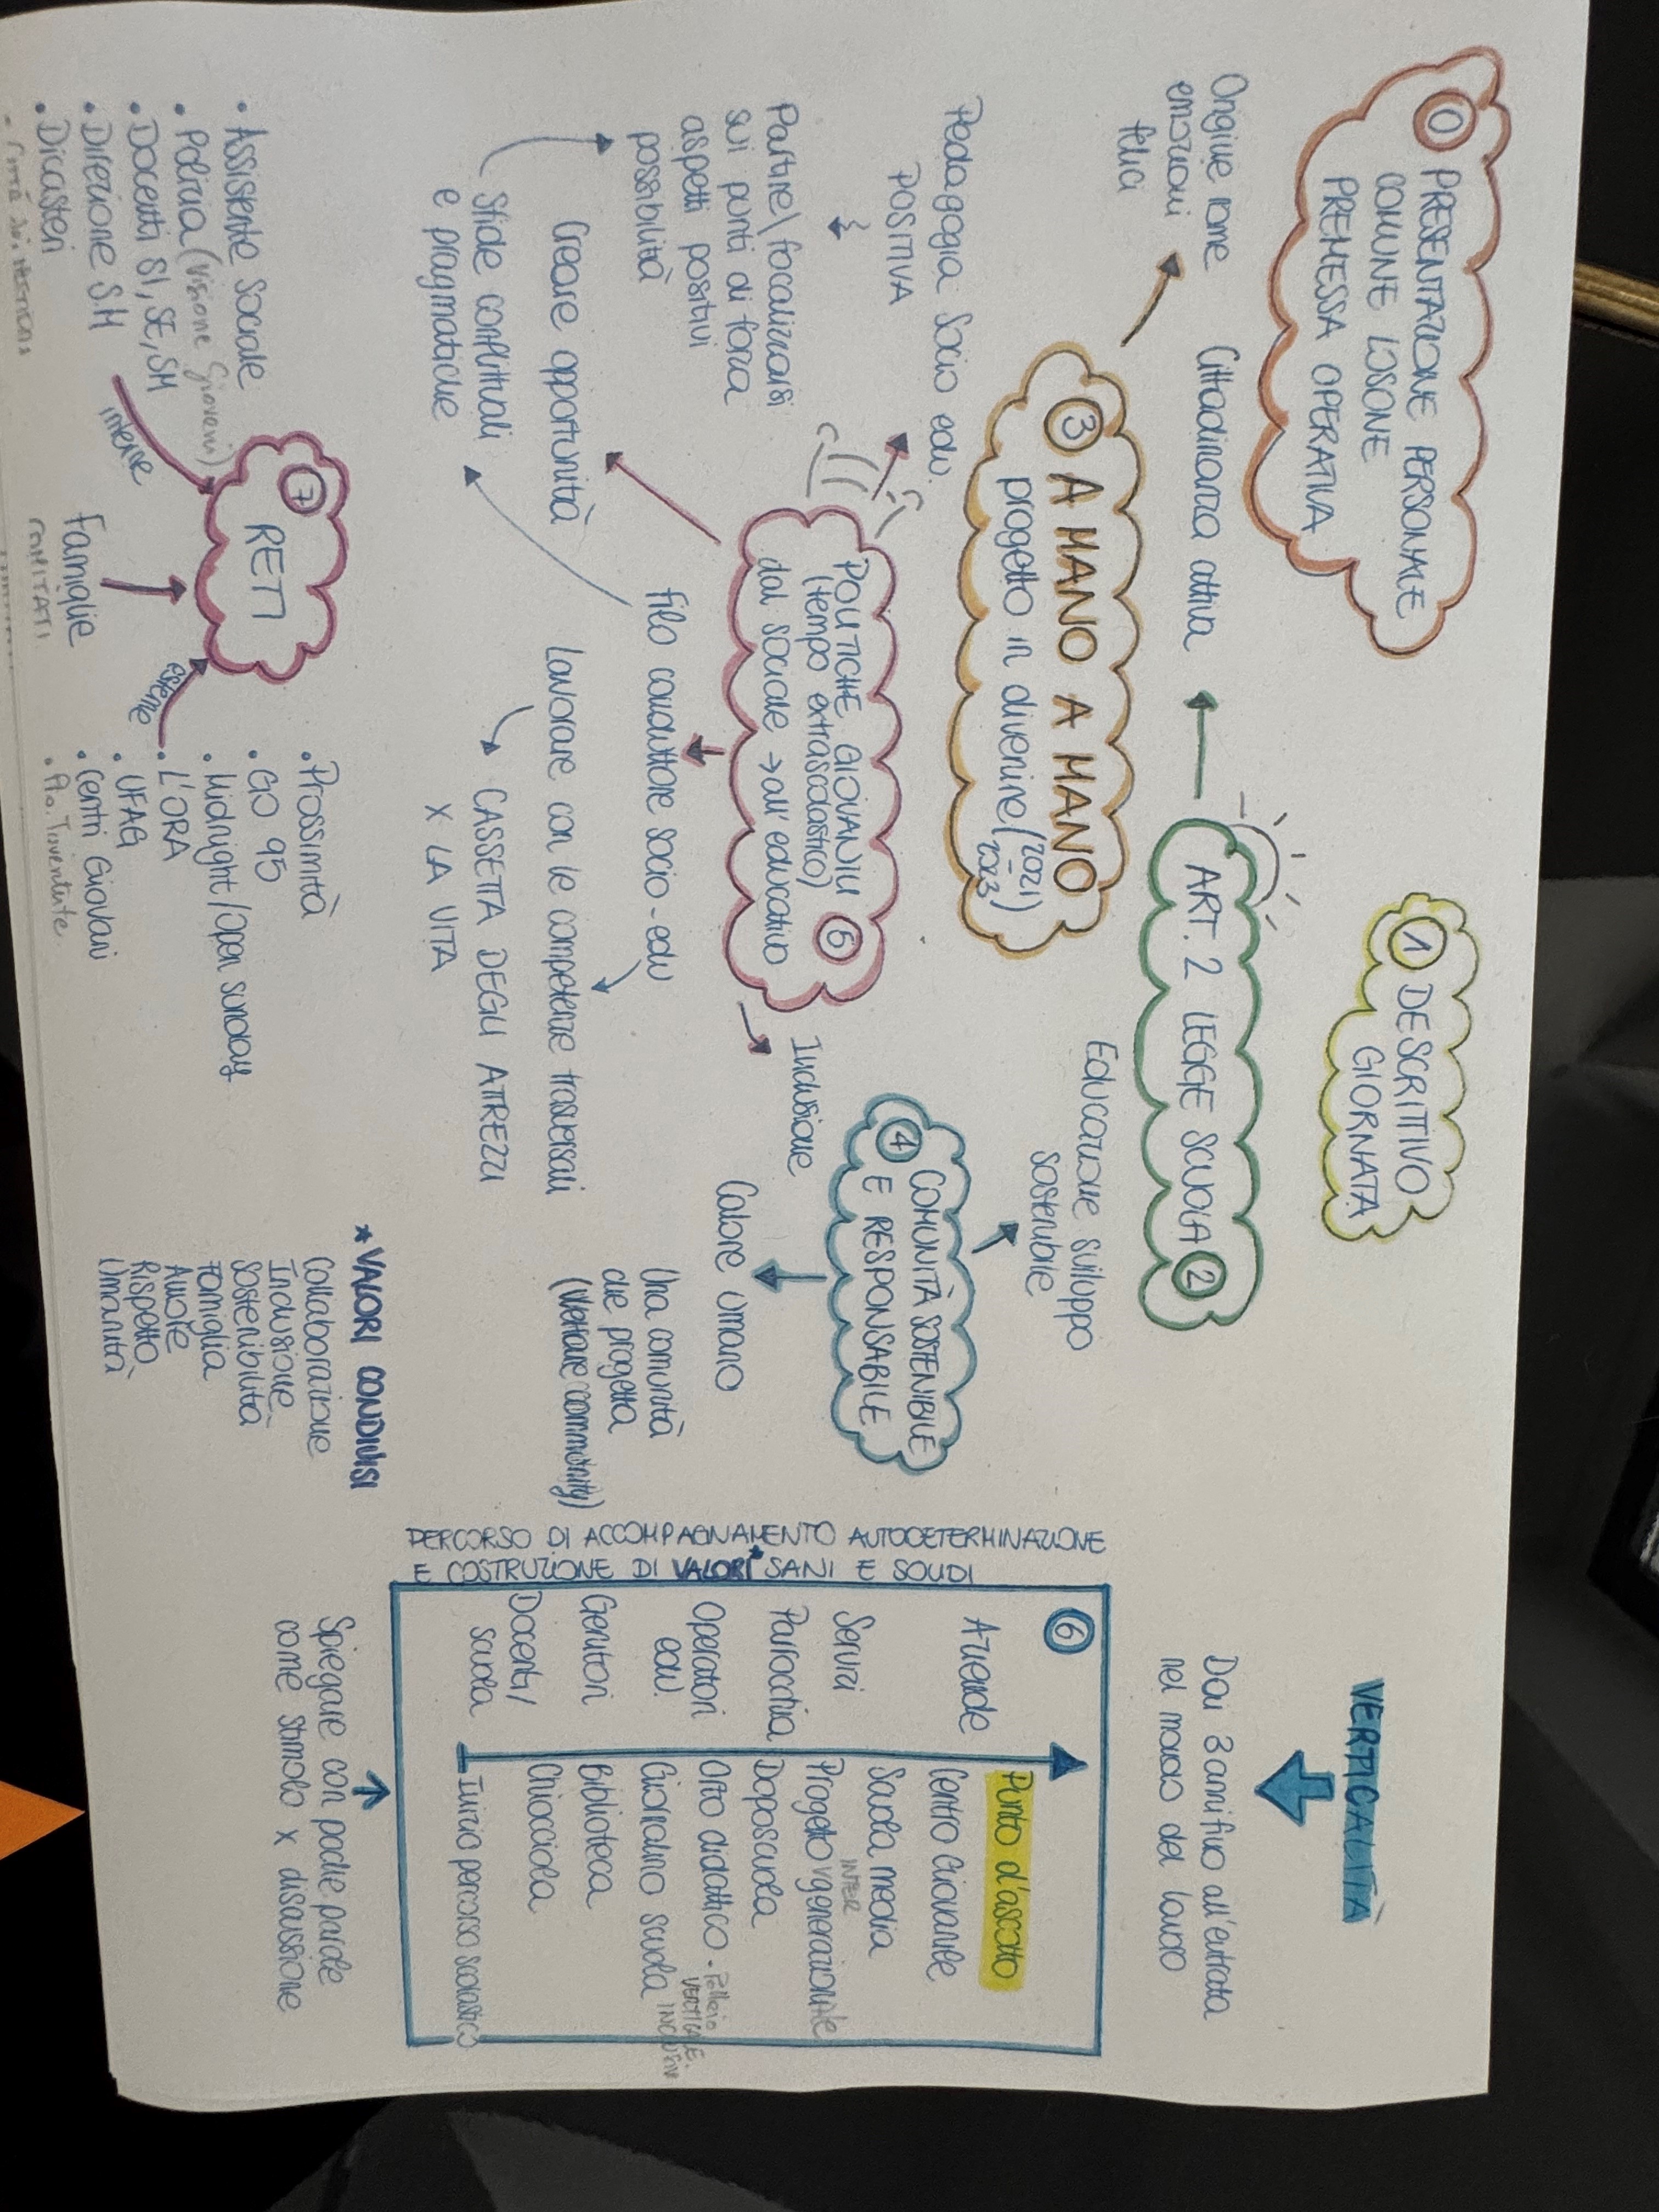 0 PRESENTAZIONE PERSONALE
COMUNE LOSONE
PREMESSA OPERATIVA
1 DESCRITTIVO
GIORNATA
VERTICALITÀ
Dai 3 anni fino all'entrata
nel mondo del lavoro
ART. 2 LEGGE SCUOLA 2
Cittadinanza attiva
Origine nome
emozioni
felici
3 A MANO A MANO
progetto in divenire (2021
2023)
Educazione sviluppo
sostenibile
4 COMUNITÀ SOSTENIBILE
E RESPONSABILE
Calore umano
Una comunità
che progetta
(Welfare community)
Pedagogia socio edu.
POSITIVA
Partire/focalizzarsi
sui punti di forza
aspetti positivi
possibilità
POLITICHE GIOVANILI 5
(tempo extrascolastico)
dal sociale → all'educativo
Inclusione
Filo conduttore socio-edu
Creare opportunità
Sfide conflittuali
e pragmatiche
Lavorare con le competenze trasversali
CASSETTA DEGLI ATTREZZI
X LA VITA
PERCORSO DI ACCOMPAGNAMENTO AUTODETERMINAZIONE
E COSTRUZIONE DI VALORI* SANI E SOLIDI
6
Aziende
Servizi
Parrocchia
Operatori
edu.
Genitori
Docenti/
scuola
Punto d'ascolto
Centro Giovanile
Scuola media
Progetto INTERgenerazionale
Doposcuola
Orto didattico
VERTICALE.
Giornalino scuola
Biblioteca
Chiocciola
Inizio percorso scolastico
Spiegare con poche parole
come stimolo x discussione
7 RETI
interne
esterne
• Assistente Sociale
• Polizia (Visione Giovani)
• Docenti SI, SE, SM
• Direzione S.M
• Dicasteri
Famiglie
COMITATI
• Prossimità
• GO 95
• Midnight/Open sunday
• L'ORA
• UFAG
• Centri Giovani
Juventute
*VALORI CONDIVISI
Collaborazione
Inclusione
Sostenibilità
Famiglia
Amore
Rispetto
Umanità